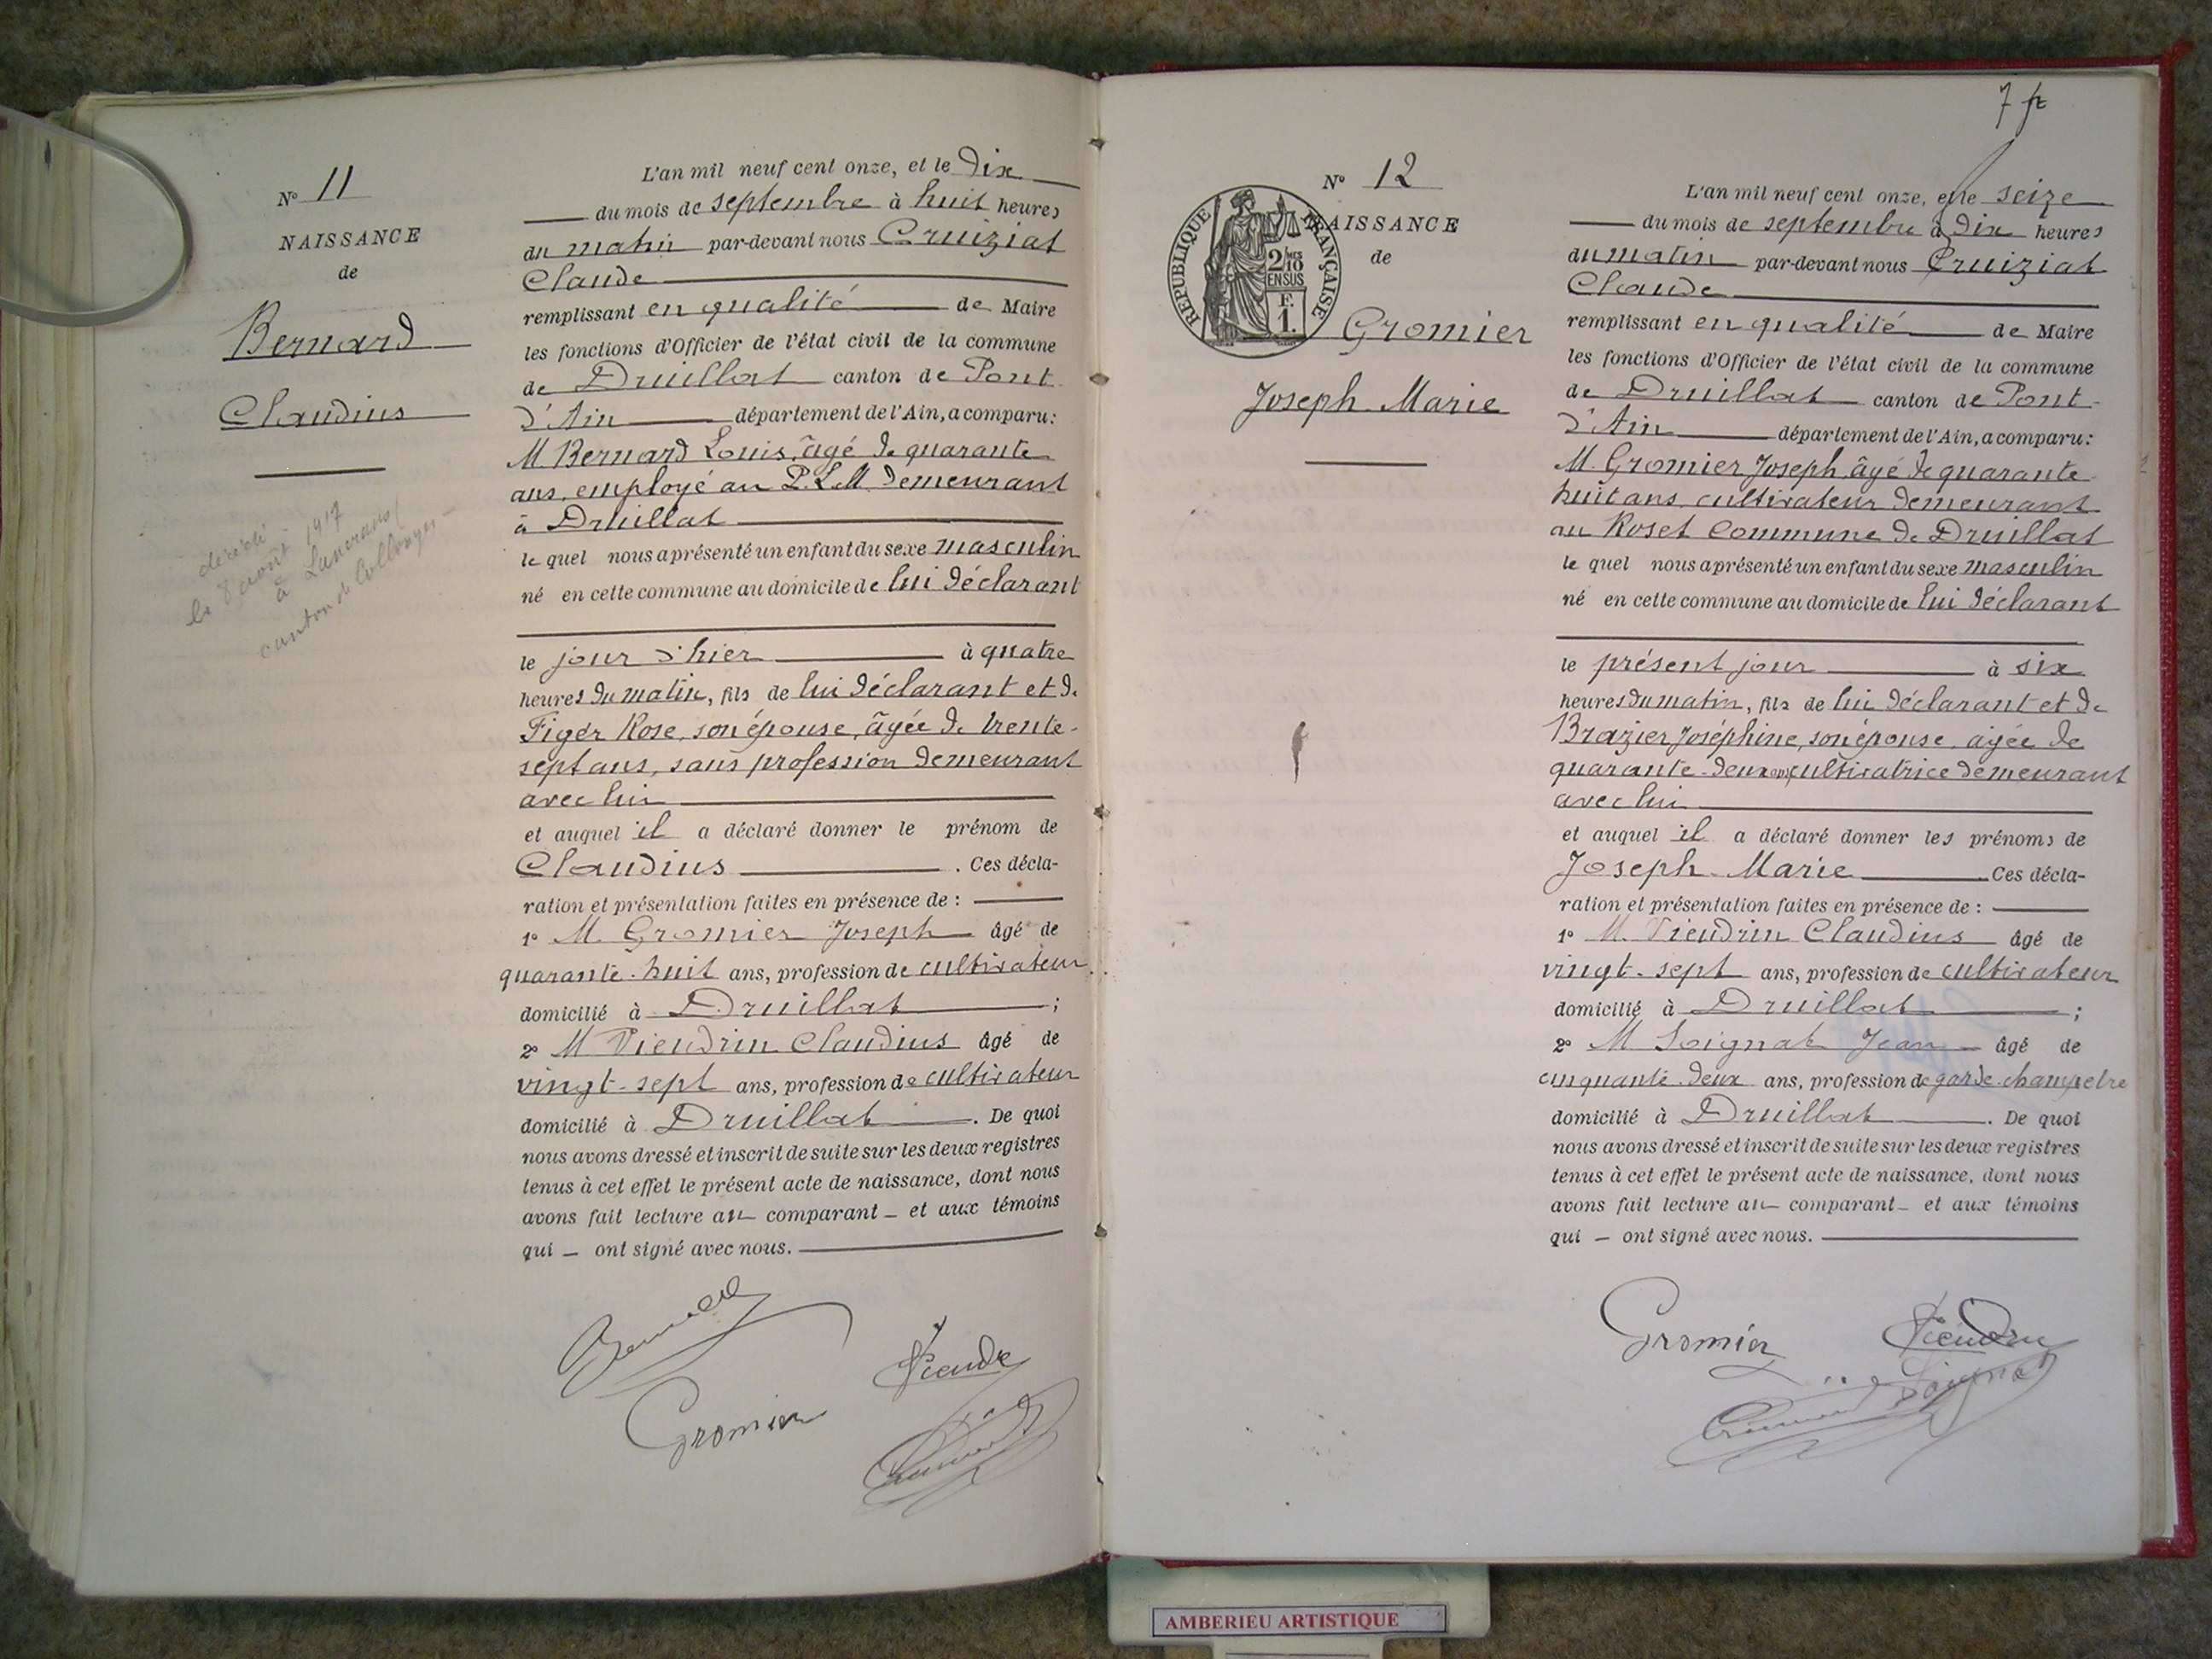 N° 11
NAISSANCE
de
Bernard
Claudius
décédé
le 8 août 1917
à Lancrans
canton de Collonges
L'an mil neuf cent onze, et le Dix
du mois de septembre à huit heures
du matin par-devant nous Cruiziat
Claude
remplissant en qualité de Maire
les fonctions d'Officier de l'état civil de la commune
de Druillat canton de Pont
d'Ain département de l'Ain, a comparu:
M. Bernard Louis, âgé de quarante
ans, employé au P.L.M. demeurant
à Druillat
le quel nous a présenté un enfant du sexe masculin
né en cette commune au domicile de lui déclarant
le jour d'hier à quatre
heures du matin, fils de lui déclarant et de
Figer Rose, son épouse, âgée de trente-
sept ans, sans profession demeurant
avec lui
et auquel il a déclaré donner le prénom de
Claudius. Ces décla-
ration et présentation faites en présence de :
1° M. Gromier Joseph âgé de
quarante-huit ans, profession de cultivateur
domicilié à Druillat ;
2° M Vieudrin Claudius âgé de
vingt-sept ans, profession de cultivateur
domicilié à Druillat. De quoi
nous avons dressé et inscrit de suite sur les deux registres
tenus à cet effet le présent acte de naissance, dont nous
avons fait lecture au comparant et aux témoins
qui ont signé avec nous.
Bernard
Vieudr
Gromier
7 f
N° 12
NAISSANCE
de
REPUBLIQUE FRANÇAISE
2/10
EN SUS
F.
1.
Gromier
Joseph Marie
L'an mil neuf cent onze, et le seize
du mois de septembre à Dix heures
du matin par-devant nous Cruiziat
Claude
remplissant en qualité de Maire
les fonctions d'Officier de l'état civil de la commune
de Druillat canton de Pont-
d'Ain département de l'Ain, a comparu:
M. Gromier Joseph, âgé de quarante
huit ans, cultivateur demeurant
au Roset commune de Druillat
le quel nous a présenté un enfant du sexe masculin
né en cette commune au domicile de lui déclarant
le présent jour à six
heures du matin, fils de lui déclarant et de
Brazier Joséphine, son épouse, âgée de
quarante-deux ans, cultivatrice demeurant
avec lui
et auquel il a déclaré donner les prénoms de
Joseph Marie Ces décla-
ration et présentation faites en présence de :
1° M. Vieudrin Claudius âgé de
vingt-sept ans, profession de cultivateur
domicilié à Druillat ;
2° M Soignat Jean âgé de
cinquante-deux ans, profession de garde-champetre
domicilié à Druillat. De quoi
nous avons dressé et inscrit de suite sur les deux registres
tenus à cet effet le présent acte de naissance, dont nous
avons fait lecture au comparant et aux témoins
qui ont signé avec nous.
Gromier
Vieudrin
Soignat
AMBERIEU ARTISTIQUE